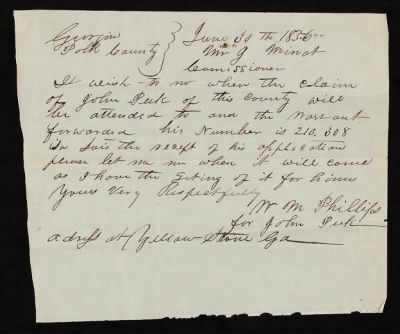 Georgia } June 30 Th 1856
Polk County } Mr J Minot
Comissioner
It wish to no when the claim
of John Peek of this county will
be attended to and the Warrant
forwarded his Number is 210.308
is the receipt of his application
please let me no when it will come
as I have the of it for him
Yours Very Respectfully
W M Phillips
for John Peek
adress at Yellow Stone Ga